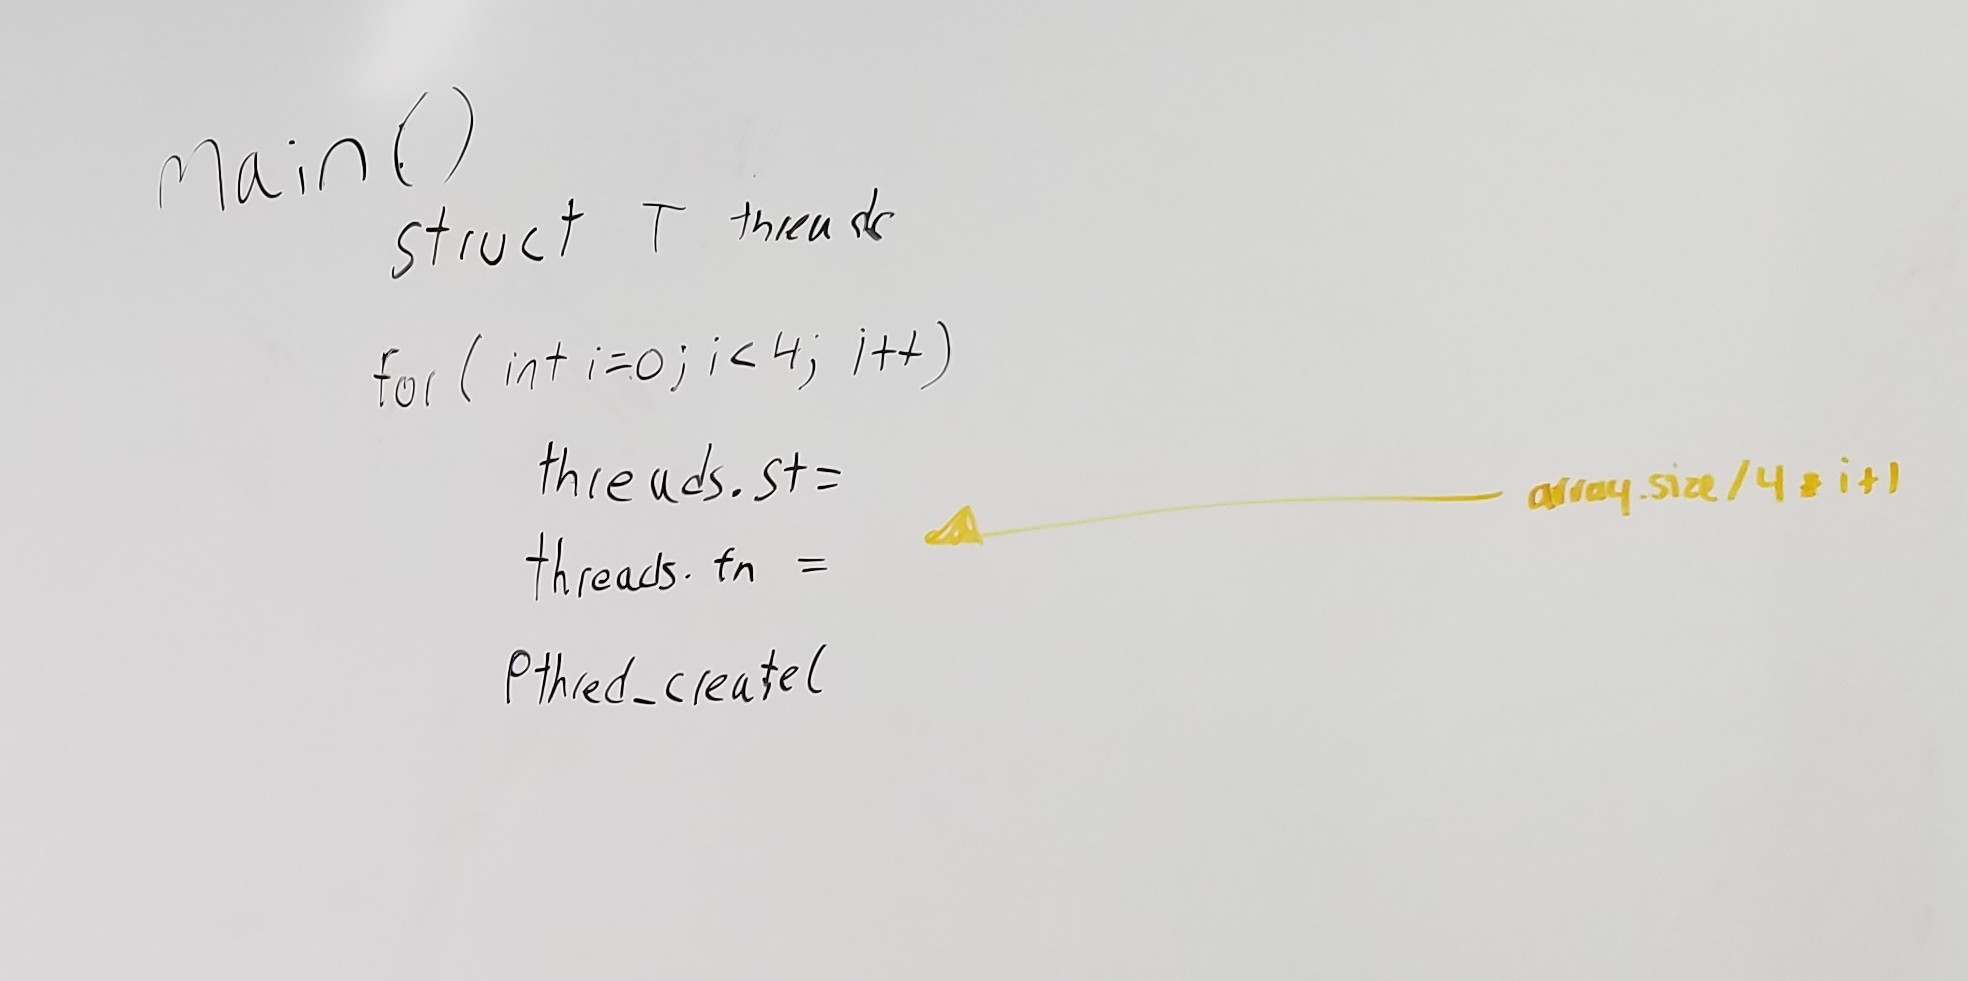 main()
struct T threads
for(int i=0; i<4; i++)
threads.st=
array.size/4 * i+1
threads.fn =
Pthred_create(